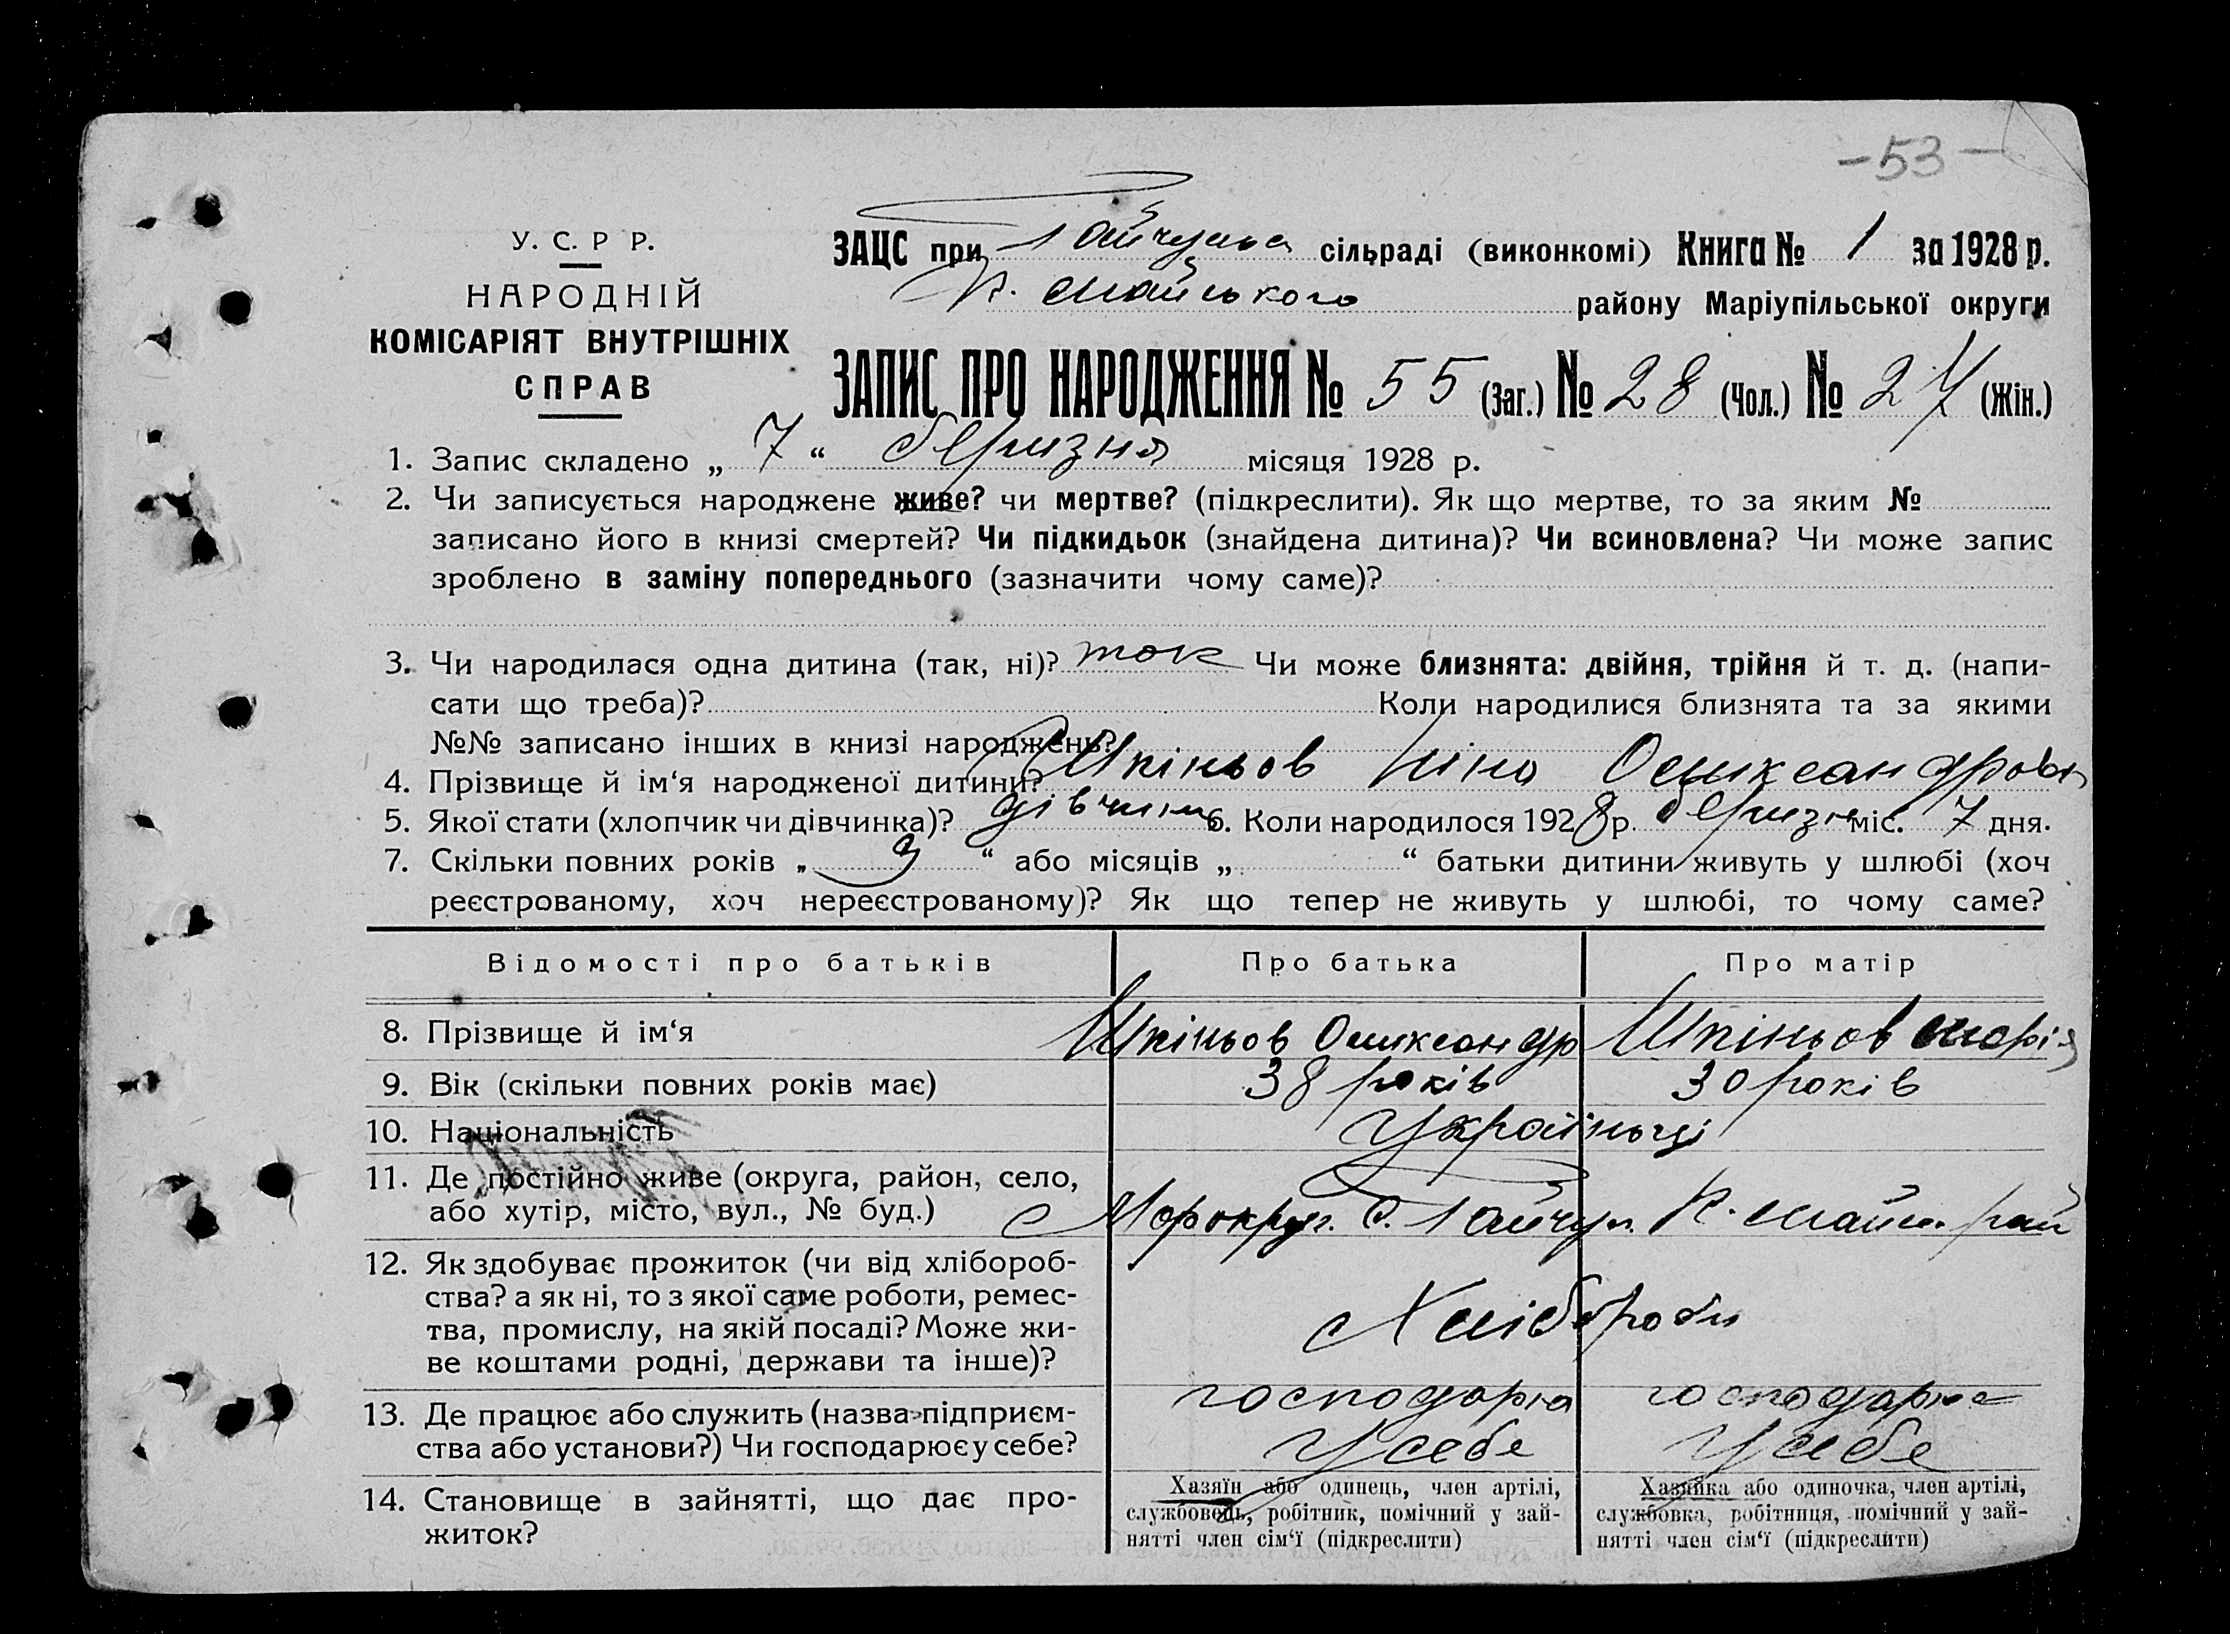 -53-
У. С. Р Р.
НАРОДНІЙ
КОМІСАРІЯТ ВНУТРІШНІХ
СПРАВ
ЗАЦС при Гайчульск сільраді (виконкомі) Книга № 1 за 1928 р.
К. Майського району Маріупільської округи
ЗАПИС ПРО НАРОДЖЕННЯ № 55 (Заг.) № 28 (Чол.) № 27 (Жін.)
1. Запис складено „ 7 “ беризня місяця 1928 р.
2. Чи записується народжене живе? чи мертве? (підкреслити). Як що мертве, то за яким №
записано його в книзі смертей? Чи підкидьок (знайдена дитина)? Чи всиновлена? Чи може запис
зроблено в заміну попереднього (зазначити чому саме)?
3. Чи народилася одна дитина (так, ні)? так Чи може близнята: двійня, трійня й т. д. (напи-
сати що треба)? Коли народилися близнята та за якими
№№ записано інших в книзі народжень?
4. Прізвище й ім‘я народженої дитини? Шпіньов Ніна Олександровн
5. Якої стати (хлопчик чи дівчинка)? дівчина 6. Коли народилося 1928 р. беризня міс. 7 дня.
7. Скільки повних років „ 9 “ або місяців „ “ батьки дитини живуть у шлюбі (хоч
реєстрованому, хоч нереєстрованому)? Як що тепер не живуть у шлюбі, то чому саме?
Відомості про батьків Про батька Про матір
8. Прізвище й ім‘я Шпіньов Олександр Шпіньов Марія
9. Вік (скільки повних років має) 38 років 30 років
10. Національність Україньці
11. Де постійно живе (округа, район, село,
або хутір, місто, вул., № буд.) Марокруг. с. Гайчул. К. Майськ. рай
12. Як здобуває прожиток (чи від хлібороб-
ства? а як ні, то з якої саме роботи, ремес-
тва, промислу, на якій посаді? Може жи-
ве коштами родні, держави та інше)?
Хлібороби
13. Де працює або служить (назва підприєм-
ства або установи?) Чи господарює у себе?
господарює у себе господарює у себе
14. Становище в зайнятті, що дає про-
житок?
Хазяїн або одинець, член артілі,
службовець, робітник, помічний у зай-
нятті член сім‘ї (підкреслити)
Хазяйка або одиночка, член артілі,
службовка, робітниця, помічний у зай-
нятті член сім‘ї (підкреслити)